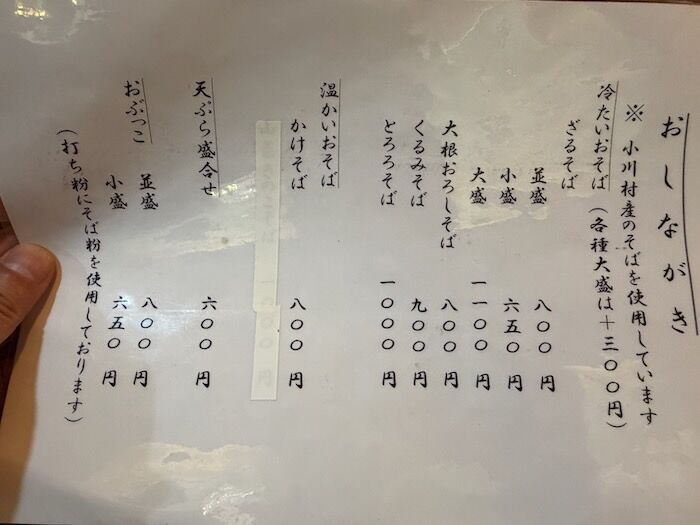 おしながき
※ 小川村産のそばを使用しています
冷たいおそば（各種大盛は＋三〇〇円）
ざるそば
並盛 八〇〇円
小盛 六五〇円
大盛 一一〇〇円
大根おろしそば 八〇〇円
くるみそば 九〇〇円
とろろそば 一〇〇〇円
温かいおそば
かけそば 八〇〇円
天ぷら盛合せ 六〇〇円
おぶっこ
並盛 八〇〇円
小盛 六五〇円
（打ち粉にそば粉を使用しております）